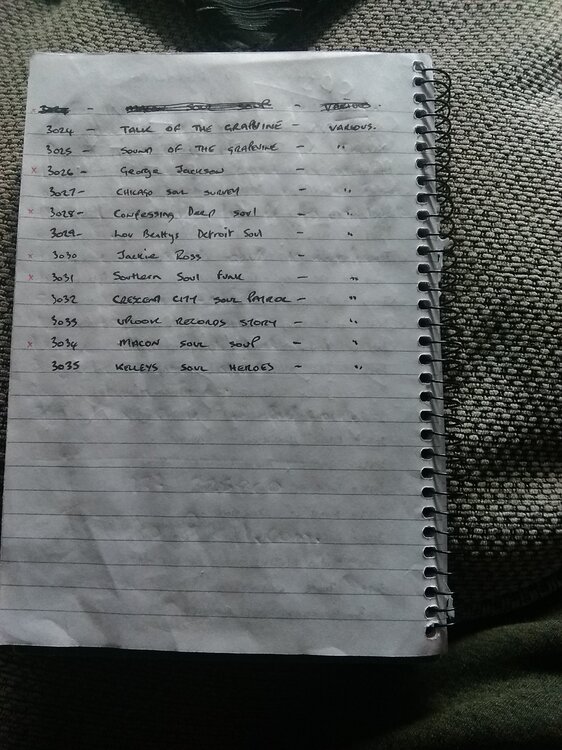 - SOUL SOUP - VARIOUS.
3024 - TALK OF THE GRAPEVINE - VARIOUS.
3025 - SOUND OF THE GRAPEVINE - "
x 3026 - George Jackson -
3027 - CHICAGO SOUL SURVEY - "
x 3028 - Confessing Deep Soul - "
3029 - Lou Beattys Detroit Soul - "
x 3030 Jackie Ross -
x 3031 Southern Soul Funk - "
3032 CRESCENT CITY SOUL PATROL - "
3033 UPLOOK RECORDS STORY - "
x 3034 MACON SOUL SOUP - "
3035 KELLEYS SOUL HEROES - "